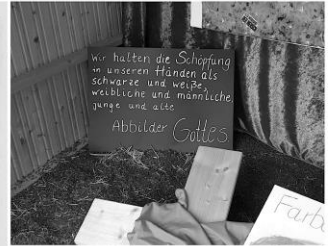 Wir halten die Schöpfung
in unseren Händen als
schwarze und weiße,
weibliche und männliche
junge und alte
Abbilder Gottes
Farb